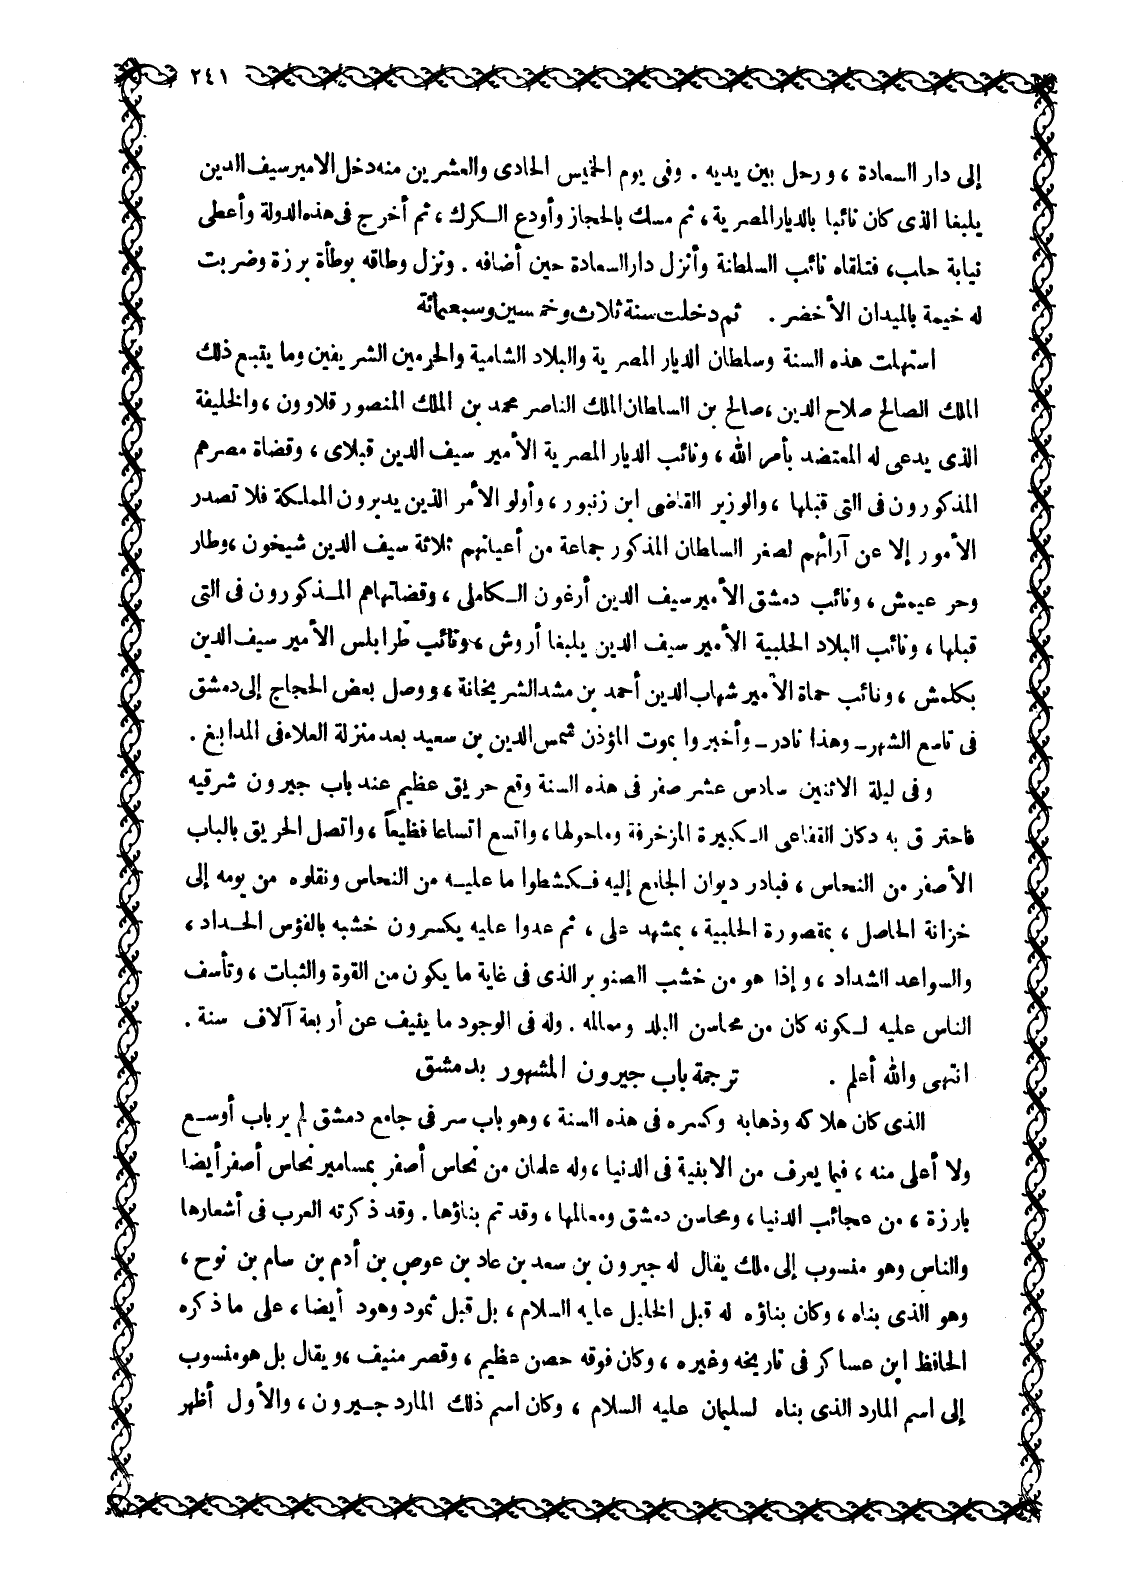 ٢٤١
إلى دار السعادة ، ورحل بين يديه . وفى يوم الخميس الحادى والعشرين منه دخل الامير سيف الدين
يلبغا الذى كان نائبا بالديار المصرية ، ثم مسك بالحجاز وأودع الكرك ، ثم أخرج فى هذه الدولة وأعطى
نيابة حلب ، فتلقاه نائب السلطنة وأنزل دار السعادة حين أضافه . ونزل وطاقه بوطأة برزة وضربت
له خيمة بالميدان الأخضر . ثم دخلت سنة ثلاث وخمسين وسبعمائة
استهلت هذه السنة وسلطان الديار المصرية والبلاد الشامية والحرمين الشريفين وما يتبع ذلك
الملك الصالح صلاح الدين ، صالح بن السلطان الملك الناصر محمد بن الملك المنصور قلاوون ، والخليفة
الذى يدعى له المعتضد بأمر الله ، ونائب الديار المصرية الأمير سيف الدين قبلاى ، وقضاة مصر هم
المذكورون فى التى قبلها ، والوزير القاضى ابن زنبور ، وأولو الأمر الذين يدبرون المملكة فلا تصدر
الأمور إلا عن آرائهم لصغر السلطان المذكور جماعة من أعيانهم ثلاثة سيف الدين شيخون ، وطار
وحر عيمش ، ونائب دمشق الأمير سيف الدين أرغون الكاملى ، وقضاتهاهم المذكورون فى التى
قبلها ، ونائب البلاد الحلبية الأمير سيف الدين يلبغا أروش ، ونائب طرابلس الأمير سيف الدين
بكلمش ، ونائب حماة الأمير شهاب الدين أحمد بن مشد الشريخانة ، ووصل بعض الحجاج إلى دمشق
فى تاسع الشهر ــ وهذا نادر ــ وأخبروا بموت المؤذن شمس الدين بن سعيد بعد منزلة العلاء فى المدابغ .
وفى ليلة الاثنين سادس عشر صفر فى هذه السنة وقع حريق عظيم عند باب جيرون شرقيه
فاحترق به دكان القفاعى الكبيرة المزخرفة وما حولها ، واتسع اتساعا فظيعاً ، واتصل الحريق بالباب
الأصفر من النحاس ، فبادر ديوان الجامع إليه فكشطوا ما عليه من النحاس ونقلوه من يومه إلى
خزانة الحاصل ، بمقصورة الحلبية ، بمشهد على ، ثم عدوا عليه يكسرون خشبه بالفؤس الحداد ،
والسواعد الشداد ، وإذا هو من خشب الصنوبر الذى فى غاية ما يكون من القوة والثبات ، وتأسف
الناس عليه لكونه كان من محاسن البلد ومعالمه . وله فى الوجود ما ينيف عن أربعة آلاف سنة .
انتهى والله أعلم . ترجمة باب جيرون المشهور بدمشق
الذى كان هلاكه وذهابه وكسره فى هذه السنة ، وهو باب سر فى جامع دمشق لم ير باب أوسع
ولا أعلى منه ، فيما يعرف من الابنية فى الدنيا ، وله علمان من نحاس أصفر بمسامير نحاس أصفر أيضا
بارزة ، من عجائب الدنيا ، ومحاسن دمشق ومعالمها ، وقد تم بناؤها . وقد ذكرته العرب فى أشعارها
والناس وهو منسوب إلى ملك يقال له جيرون بن سعد بن عاد بن عوص بن أدم بن سام بن نوح ،
وهو الذى بناه ، وكان بناؤه له قبل الخليل عليه السلام ، بل قبل ثمود وهود أيضا ، على ما ذكره
الحافظ ابن عساكر فى تاريخه وغيره ، وكان فوقه حصن عظيم ، وقصر منيف ، ويقال بل هو منسوب
إلى اسم المارد الذى بناه لسليمان عليه السلام ، وكان اسم ذلك المارد جيرون ، والأول أظهر